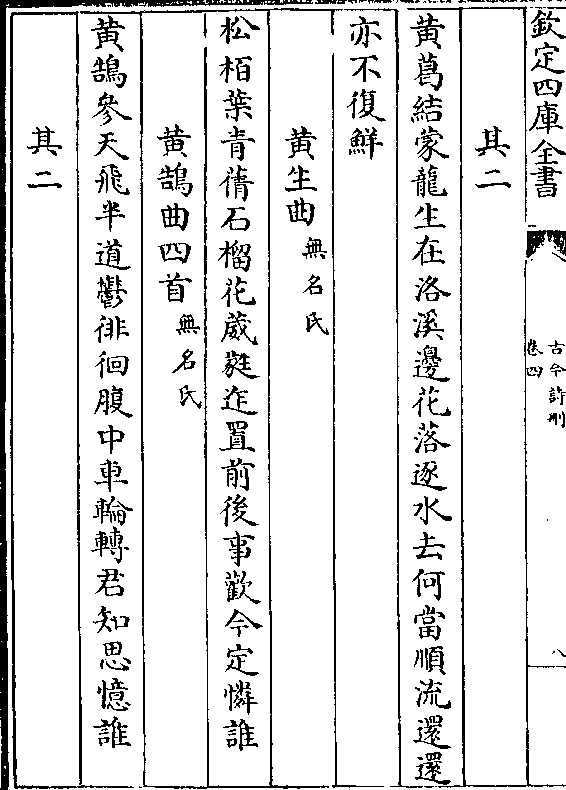 欽定四庫全書
古今詩刪
卷四
八
其二
黃葛結蒙龍生在洛溪邊花落逐水去何當順流還還
亦不復鮮
黃生曲無名氏
松栢葉青蒨石榴花葳蕤迮置前後事歡今定憐誰
黃鵠曲四首無名氏
黃鵠參天飛半道鬱徘徊腹中車輪轉君知思憶誰
其二